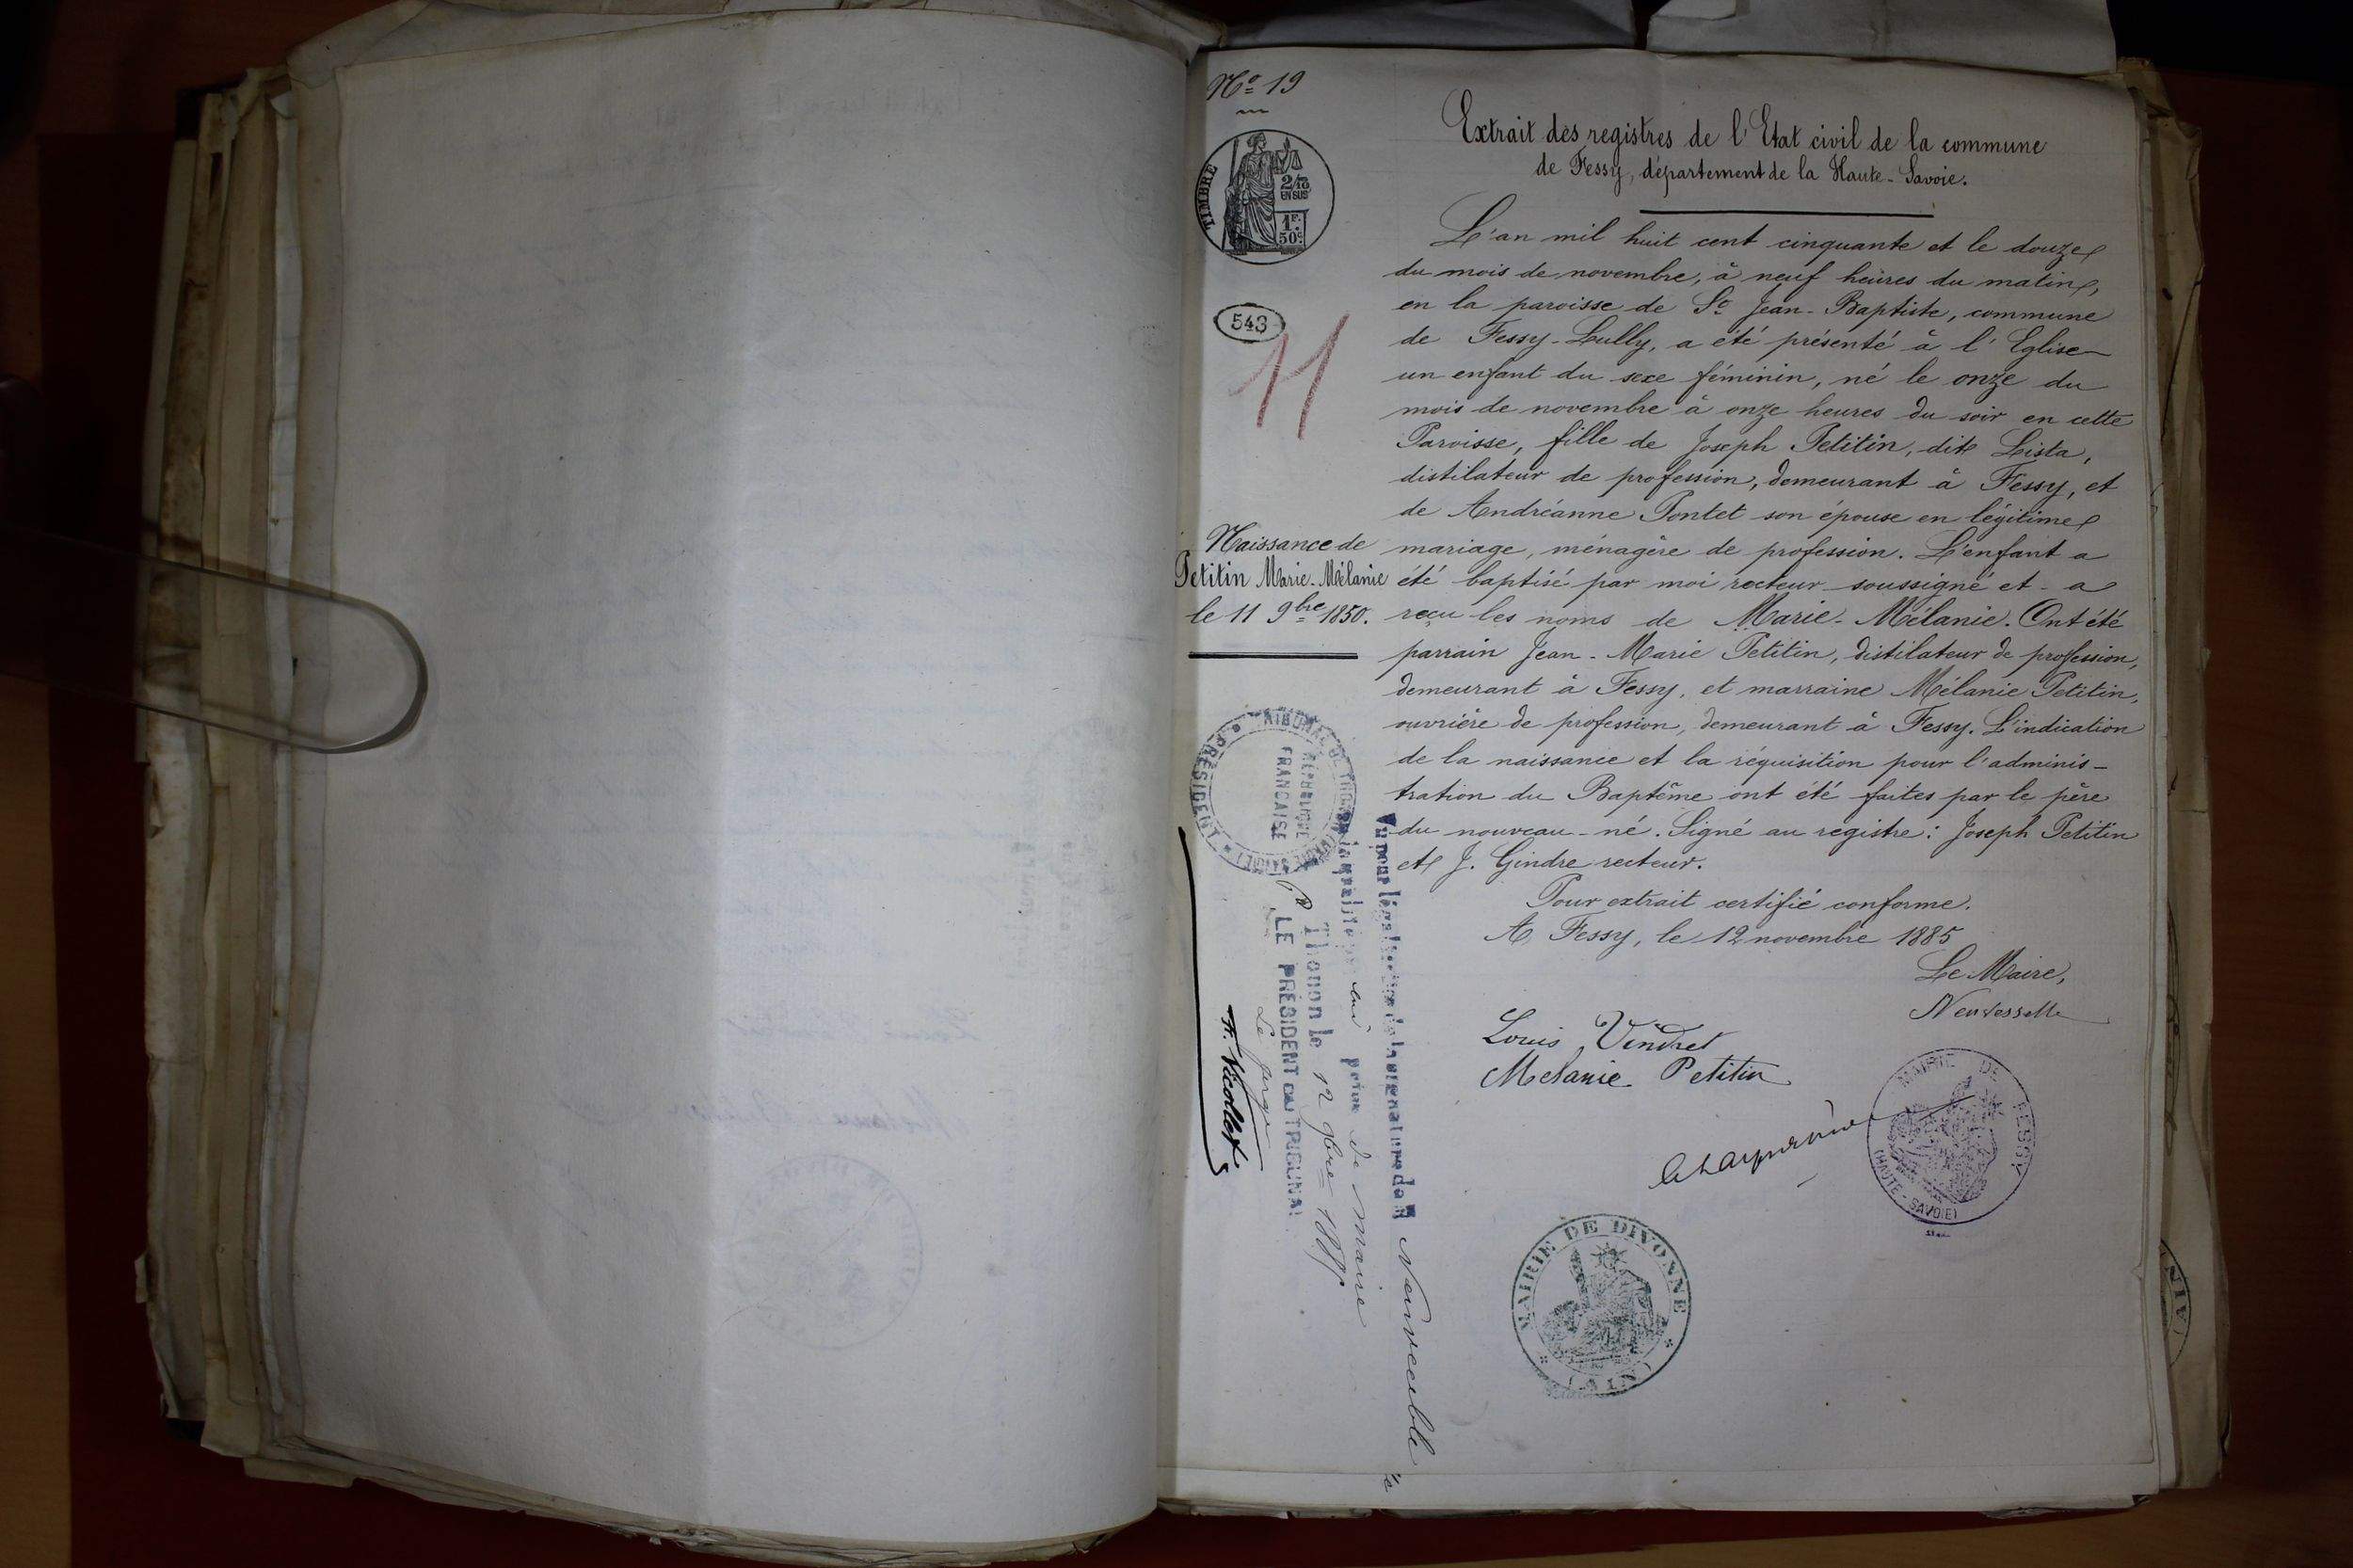 Nº 19
TIMBRE
2/10
EN SUS
1F.
50c
543
11
Naissance de
Petitin Marie-Mélanie
le 11 9bre 1850.
Extrait des registres de l'Etat civil de la commune
de Fessy, département de la Haute-Savoie.
L'an mil huit cent cinquante et le douze
du mois de novembre, à neuf heures du matin,
en la paroisse de St Jean-Baptiste, commune
de Fessy-Lully, a été présenté à l'Eglise
un enfant du sexe féminin, né le onze du
mois de novembre à onze heures du soir en cette
Paroisse, fille de Joseph Petitin, dit Lista,
distilateur de profession, demeurant à Fessy, et
de Andréanne Pontet son épouse en légitime
mariage, ménagère de profession. L'enfant a
été baptisé par moi recteur soussigné et a
reçu les noms de Marie-Mélanie. Ont été
parrain Jean-Marie Petitin, distilateur de profession,
demeurant à Fessy, et marraine Mélanie Petitin,
ouvrière de profession, demeurant à Fessy. L'indication
de la naissance et la réquisition pour l'adminis-
tration du Baptême ont été faites par le père
du nouveau-né. Signé au registre: Joseph Petitin
et J. Gindre recteur.
Pour extrait certifié conforme.
A Fessy, le 12 novembre 1885
Le Maire,
Louis Vindret
Melanie Petitin
MAIRIE DE FESSY
(HAUTE-SAVOIE)
MAIRIE DE DIVONNE
(AIN)
TRIBUNAL DE THONON
PRÉSIDENT
RÉPUBLIQUE
FRANÇAISE
Vu pour légalisation de la signature de M
de maire
Thonon le 12 9bre 1885
LE PRÉSIDENT du TRIBUNAL
Le juge